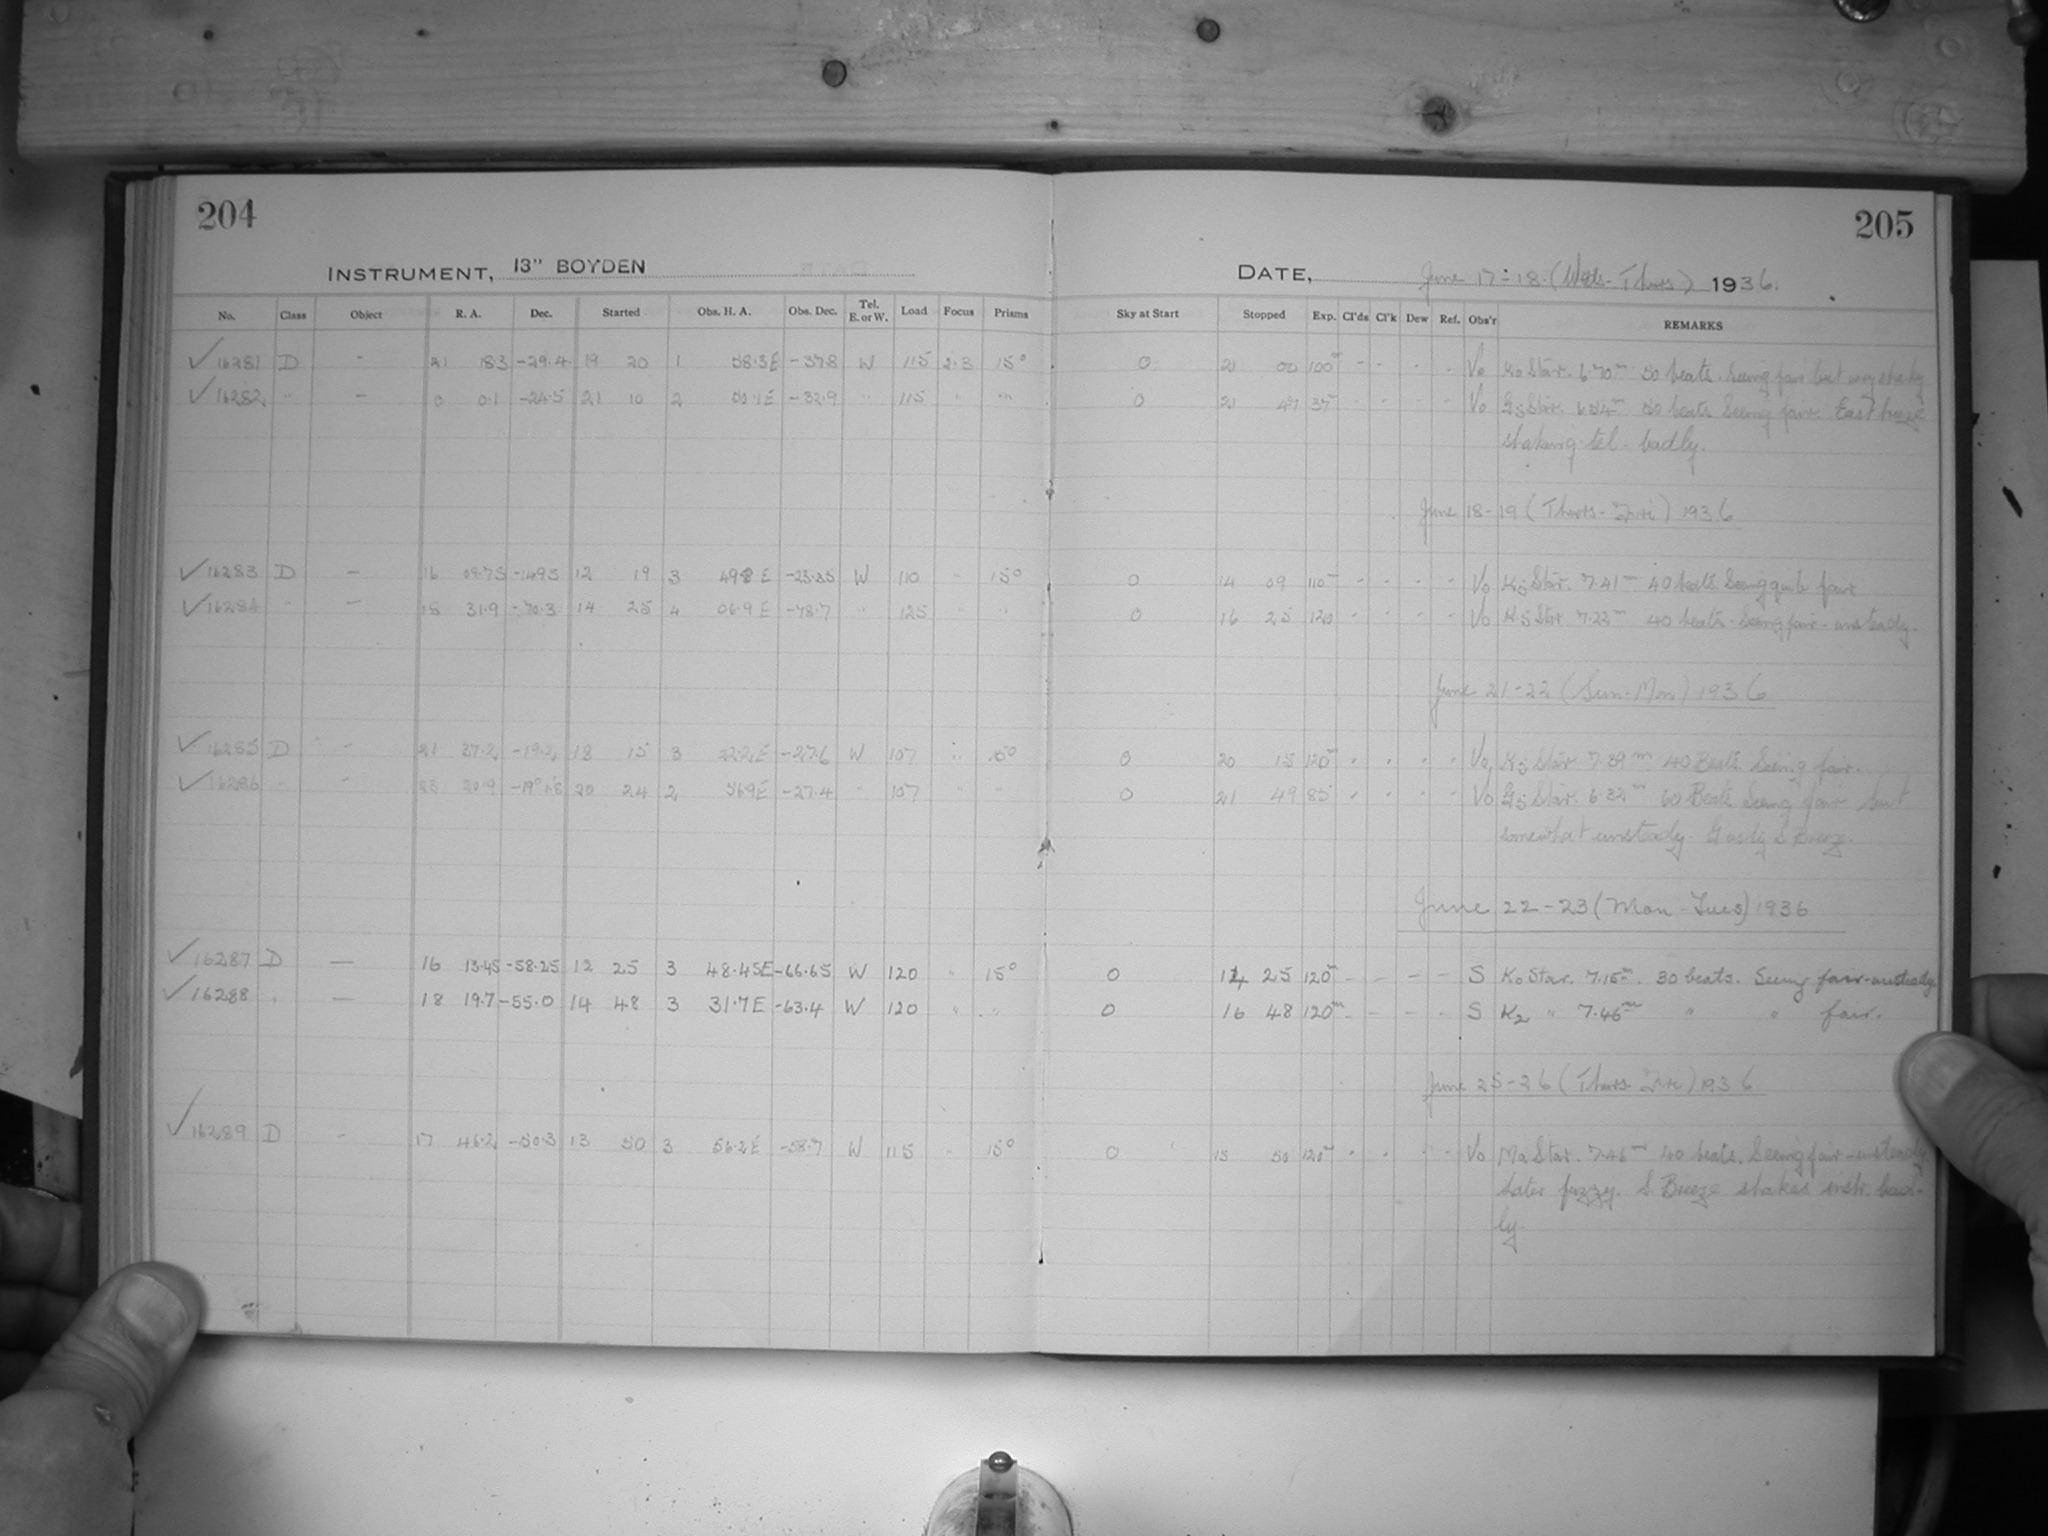 204
205
INSTRUMENT, 13" BOYDEN
DATE, June 17-18 (Weds-Thurs) 1936.
No. Class Object R. A. Dec. Started Obs. H. A. Obs. Dec. Tel. E. or W. Load Focus Prisms Sky at Start Stopped Exp. Cl'ds Cl'k Dew Ref. Obs'r REMARKS
✓16281 D - 21 18.3 -29.4 19 20 1 58.3E -37.8 W 115 2.3 15° 0 21 00 100m - - - - Vo K0 Star. 6.70m 50 beats. Seeing fair but very shaky
✓16282 " - 0 0.1 -24.5 21 10 2 E -32.9 " 115 " " 0 21 47 37 - - - - Vo G5 Star. 6.54m 50 beats Seeing fair. East breeze
shaking tel. badly.
June 18-19 (Thurs-Fri) 1936
✓16283 D - 16 09.75 -14.95 12 19 3 49.8 E -23.35 W 110 " 15° 0 14 09 110m - - - - Vo K5 Star. 7.41m 40 beats Seeing quite fair
✓16284 " - 18 31.9 -70.3 14 25 4 06.9 E -78.7 " 125 " " 0 16 25 120 - - - - Vo K5 Star 7.22m 40 beats. Seeing fair-unsteady.
June 21-22 (Sun-Mon) 1936
✓16285 D - 21 37.2 -19.2 18 15 3 22.2E -27.6 W 107 " 15° 0 20 15 120m - - - - Vo K5 Star 7.39m 40 Beats Seeing fair.
✓16286 " - 23 20.9 20 24 2 56.9E -27.4 " 107 " " 0 21 49 85 - - - - Vo G5 Star. 6.32m 60 Beats Seeing fair but
somewhat unsteady. Gusty S Breeze.
June 22-23 (Mon-Tues) 1936
✓16287 D — 16 13.45 -58.25 12 25 3 48.45E -66.65 W 120 " 15° 0 14 25 120m - - - - S K0 Star. 7.15m. 30 beats. Seeing fair-unsteady
✓16288 " — 18 19.7 -55.0 14 48 3 31.7E -63.4 W 120 " " 0 16 48 120m - - - - S K2 " 7.46m " " fair.
June 25-26 (Thurs-Fri) 1936
✓16289 D - 17 46.2 -50.3 13 50 3 56.2E -58.7 W 115 " 15° 0 15 50 120m - - - - Vo Ma Star. 7.46m 40 beats. Seeing fair-unsteady
Later fuzzy. S. Breeze shakes instr. bad-
ly.